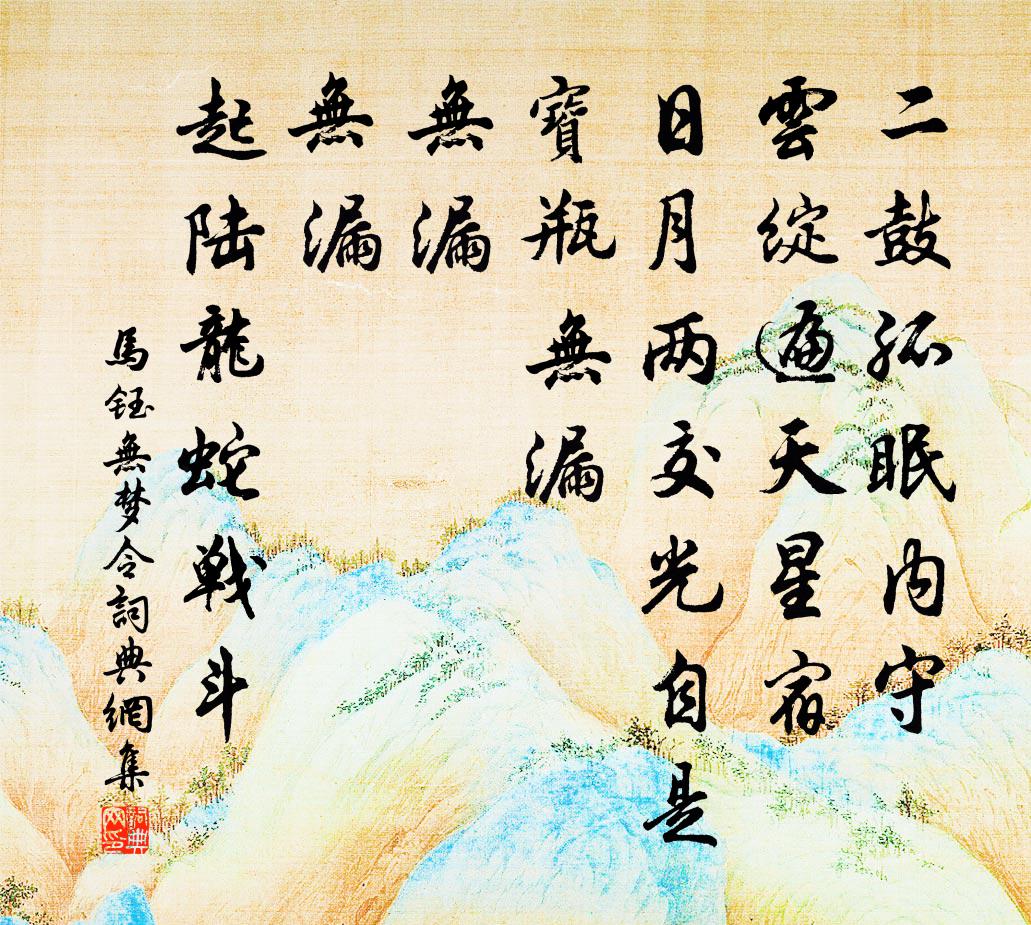 二鼓孤眠内守
雲綻遍天星宿
日月两交光自是
寶瓶無漏
無漏
無漏
起陆龍蛇戦斗
馬鈺無梦令詞典網集
詞典网印